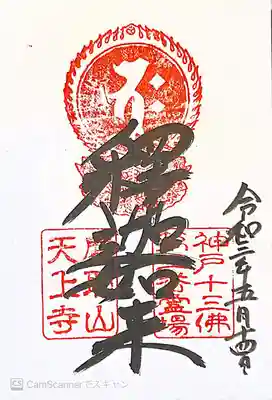 令和三年五月十四日
釋迦如来
神戸十三佛
霊場
摩耶山
天上寺
CS CamScannerでスキャン